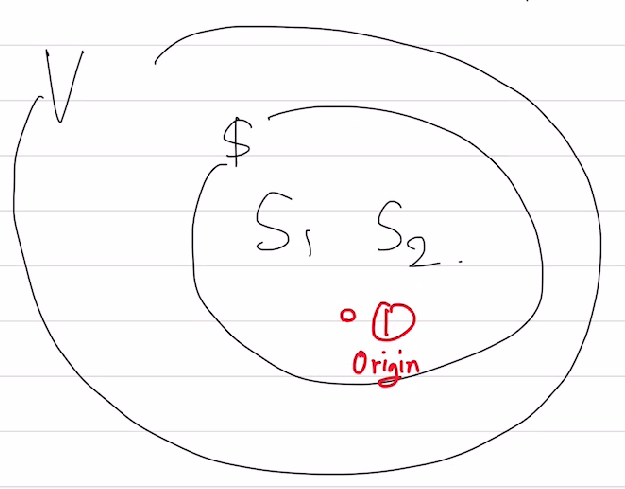 V
$
S₁ S₂.
0 ①
Origin